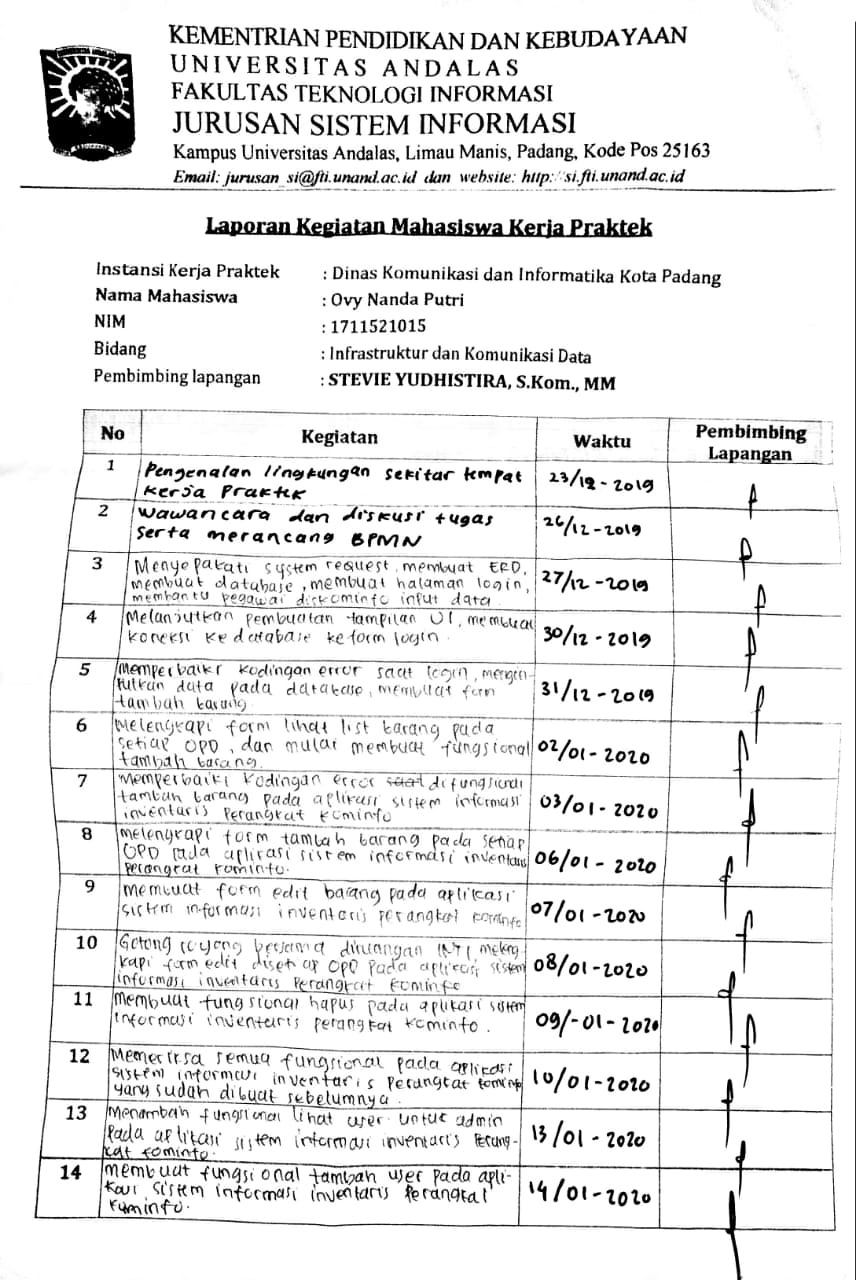 KEMENTRIAN PENDIDIKAN DAN KEBUDAYAAN
UNIVERSITAS ANDALAS
FAKULTAS TEKNOLOGI INFORMASI
JURUSAN SISTEM INFORMASI
Kampus Universitas Andalas, Limau Manis, Padang, Kode Pos 25163
Email: jurusan_si@fti.unand.ac.id dan website: http://si.fti.unand.ac.id
Laporan Kegiatan Mahasiswa Kerja Praktek
Instansi Kerja Praktek : Dinas Komunikasi dan Informatika Kota Padang
Nama Mahasiswa : Ovy Nanda Putri
NIM : 1711521015
Bidang : Infrastruktur dan Komunikasi Data
Pembimbing lapangan : STEVIE YUDHISTIRA, S.Kom., MM
No Kegiatan Waktu Pembimbing
Lapangan
1 Pengenalan lingkungan sekitar tempat 23/12-2019
Kerja Praktek
2 Wawancara dan diskusi tugas 26/12-2019
serta merancang BPMN
3 Menyepakati system request, membuat ERD, 27/12-2019
membuat database, membuat halaman login,
membantu pegawai diskominfo input data.
4 Melanjutkan pembuatan tampilan UI, membuat 30/12-2019
koneksi ke database ke form login.
5 Memperbaiki kodingan error saat login, mengin- 31/12-2019
putkan data pada database, membuat form
tambah barang.
6 Melengkapi form lihat list barang pada 02/01-2020
setiap OPD, dan mulai membuat fungsional
tambah barang.
7 Memperbaiki kodingan error saat difungsional 03/01-2020
tambah barang pada aplikasi sistem informasi
inventaris perangkat kominfo
8 melengkapi form tambah barang pada setiap 06/01-2020
OPD pada aplikasi sistem informasi inventaris
perangkat kominfo.
9 Membuat form edit barang pada aplikasi 07/01-2020
sistem informasi inventaris perangkat kominfo
10 Gotong royong bersama diruangan meleng 08/01-2020
kapi form edit disetiap OPD pada aplikasi sistem
informasi inventaris perangkat kominfo
11 Membuat fungsional hapus pada aplikasi sistem 09/-01-2020
informasi inventaris perangkat kominfo.
12 Memeriksa semua fungsional pada aplikasi 10/01-2020
sistem informasi inventaris perangkat kominfo
yang sudah dibuat sebelumnya.
13 Menambah fungsional lihat user untuk admin 13/01-2020
pada aplikasi sistem informasi inventaris perang-
kat kominfo.
14 membuat fungsional tambah user pada apli- 14/01-2020
kasi sistem informasi inventaris perangkat
kominfo.